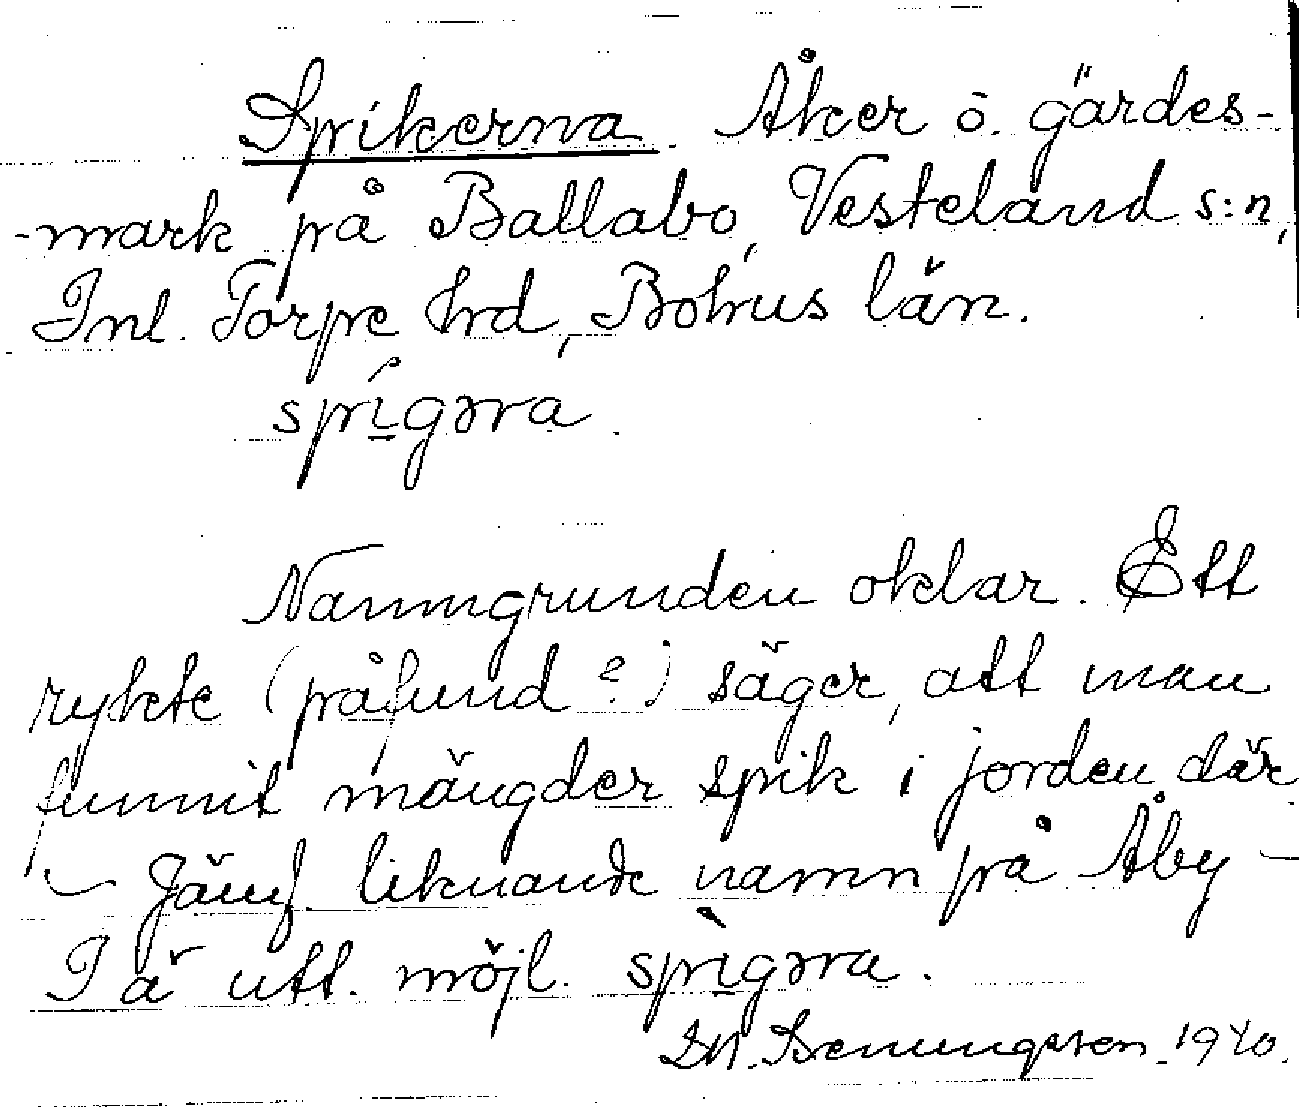 Spikerna. Åker o. gärdes-
-mark på Ballabo, Vesteland s:n,
Inl. Torpe hrd, Bohus län.
spígəra.
Namngrunden oklar. Ett
rykte (påfund?) säger, att man
funnit mängder spik i jorden där
- Jämf. liknande namn på Åby -
I ä utt. möjl. spìgəra.
1940.